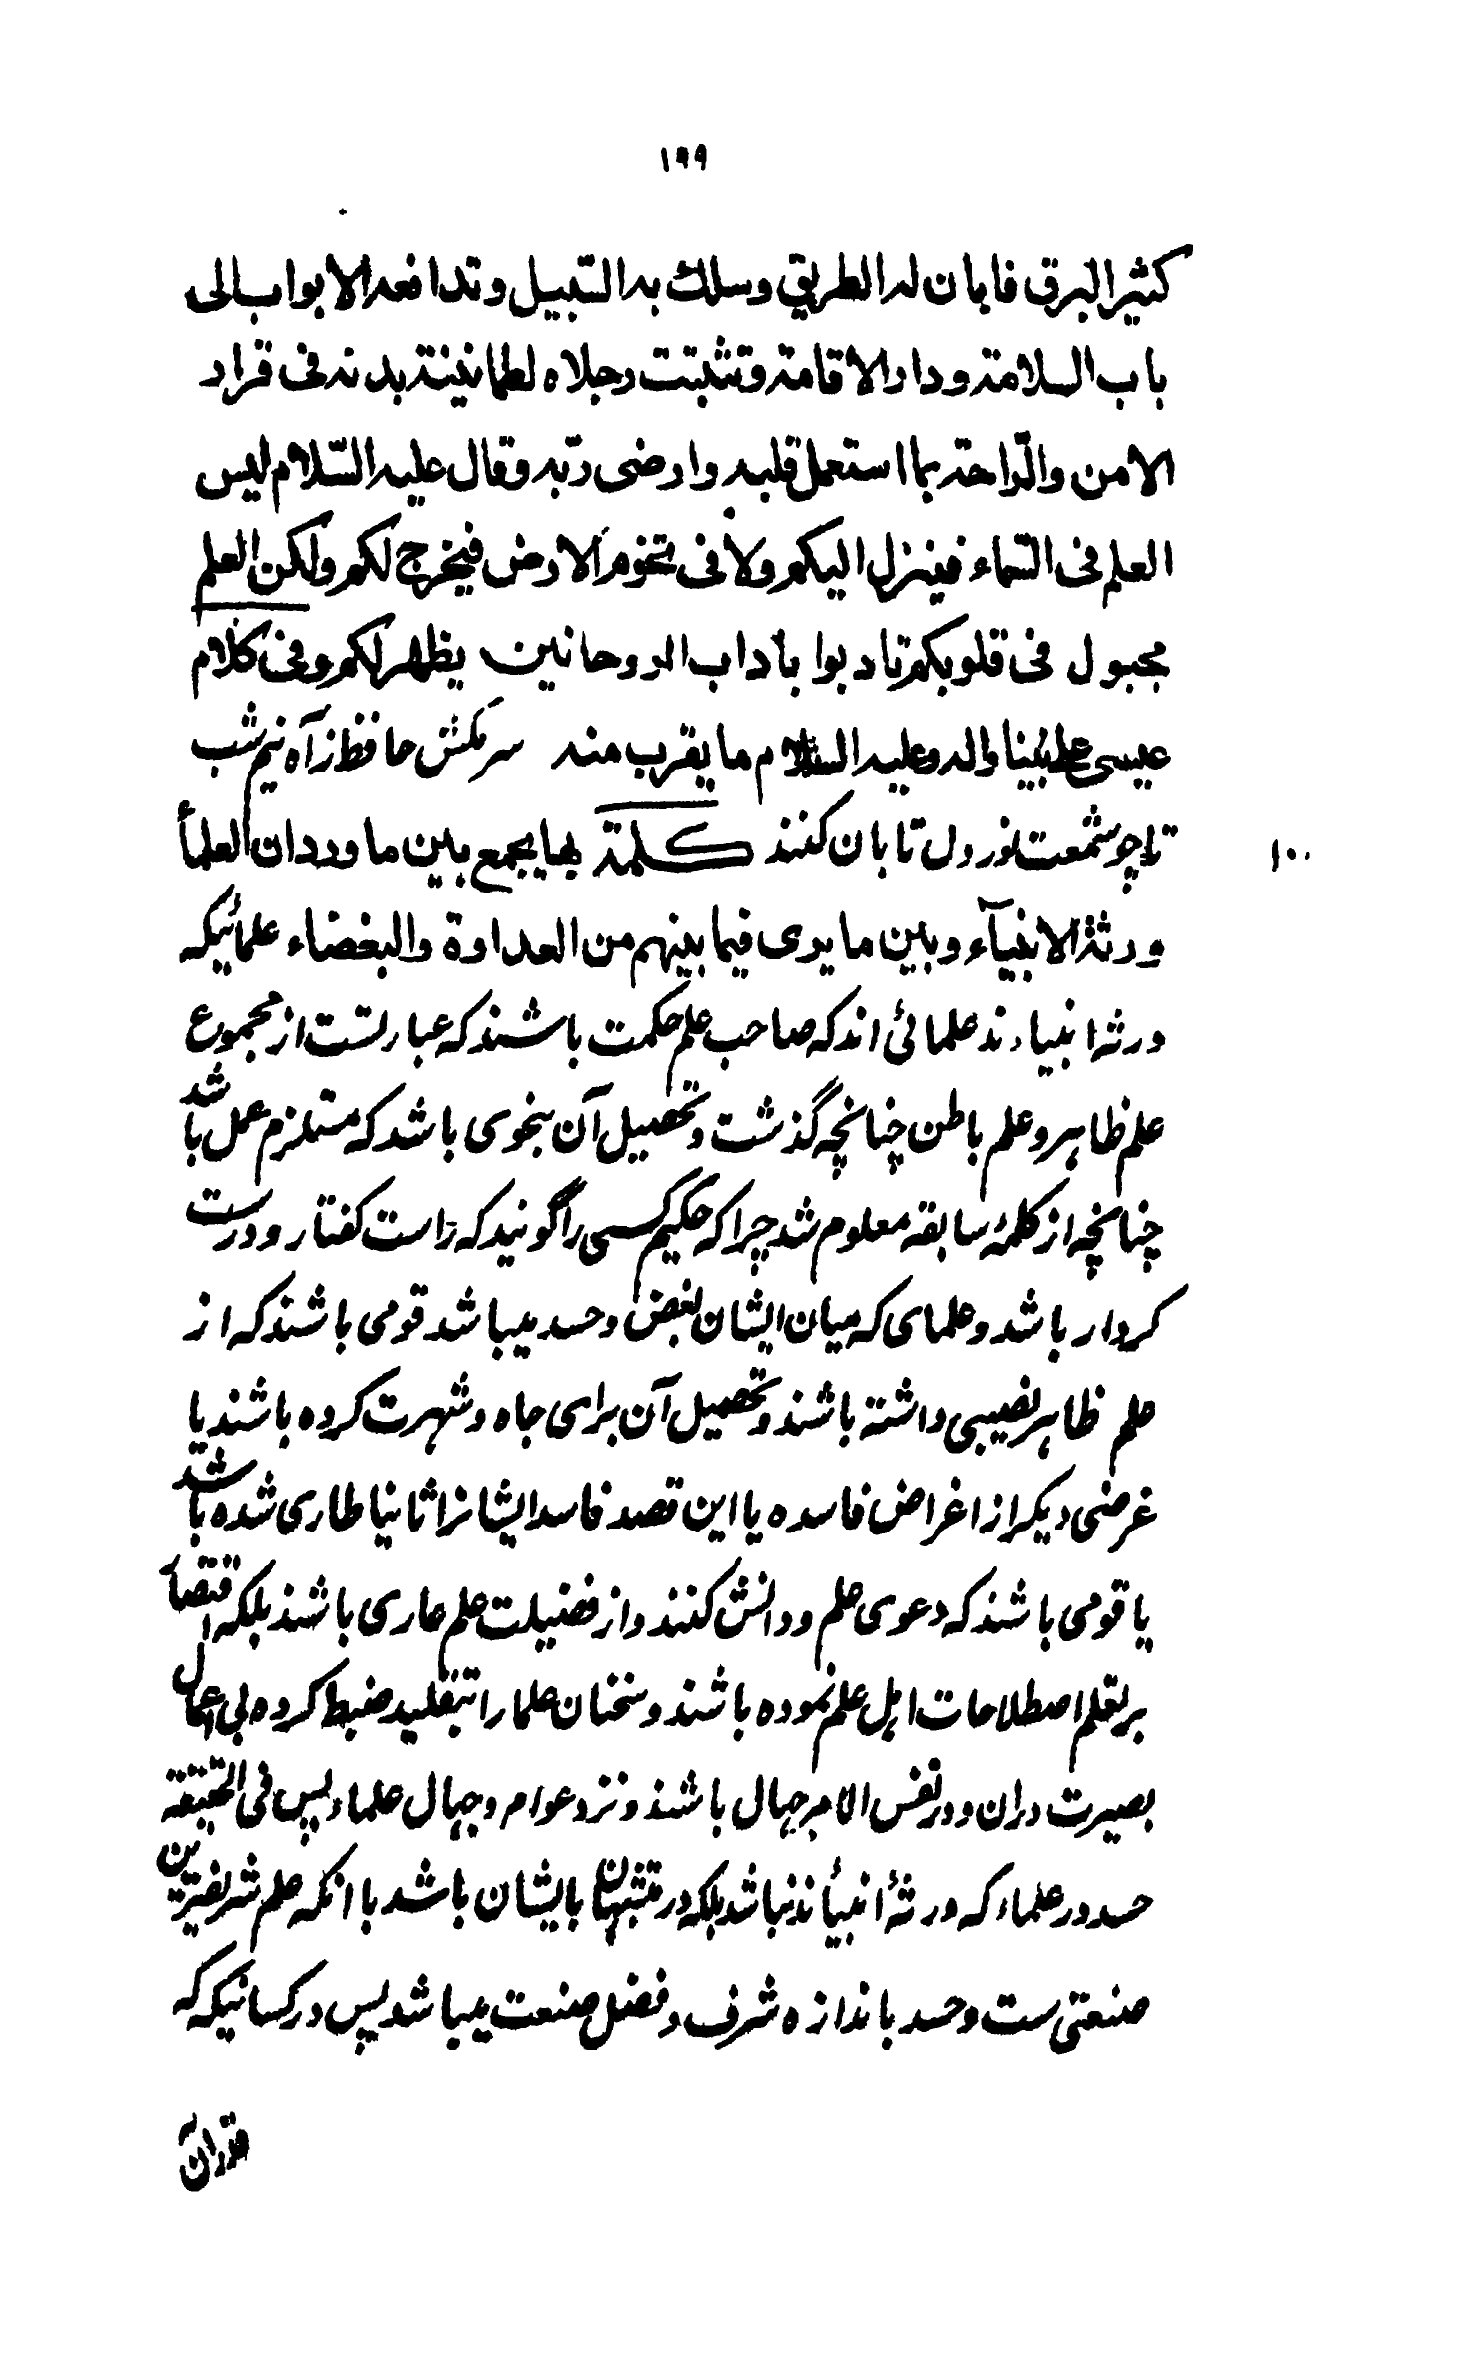 ۱۹۹
كثير البرق فابان له الطريق وسلك به السّبيل وتدافعه الابواب الى
باب السلامة ودار الاقامة وتثبتت رجلاه لطمانينة بدنه فى قرار
الامن والرّاحة بما استعمل قلبه وارضى ربّه وقال عليه السّلام ليس
العلم فى السّماء فينزل اليكم ولا فى تخوم الارض فيخرج لكم ولكن العلم
مجبول فى قلوبكم تادبوا بآداب الروحانين يظهر لكم وفى كلام
عيسى على نبينا واله وعليه السلام ما يقرب منه سر مكش حافظ ز آه نيم شب
تا چو شمعت نور دل تابان كنند كلمة بها يجمع بين ما ورد ان العلمأ
۱۰۰
ورثة الانبيآء وبين ما يرى فيما بينهم من العداوة والبغضاء علمائيكه
ورثه انبياءند علمائى اند كه صاحب علم حكمت باشند كه عبارتست از مجموع
علم ظاهر و علم باطن چنانچه گذشت و تحصيل آن بنحوى باشد كه مستلزم عمل باشد
چنانچه از كلمهٔ سابقه معلوم شد چرا كه حكيم كسى را گويند كه راست كفتار و درست
كردار باشد و علماى كه ميان ايشان بغض و حسد ميباشد قومى باشند كه از
علم ظاهر نصيبى داشته باشند و تحصيل آن براى جاه و شهرت كرده باشند يا
غرضى ديكر از اغراض فاسده يا اين قصد فاسد ايشانرا ثانيا طارى شده باشد
يا قومى باشند كه دعوى علم و دانش كنند و از فضيلت علم عارى باشند بلكه اقتصار
بر تعلم اصطلاحات اهل علم نموده باشند و سخنان علما را بتقليد ضبط كرده بى اعمال
بصيرت دران و در نفس الامر جهال باشند و نزد عوام و جهال علما و پس فى الحقيقة
حسد در علماء كه ورثهٔ انبيأند نباشد بلكه در متشبهان بايشان باشد با انكه علم شريفترين
صنعتى ست و حسد باندازه شرف و فضل صنعت ميباشد پس در كسانيكه كه